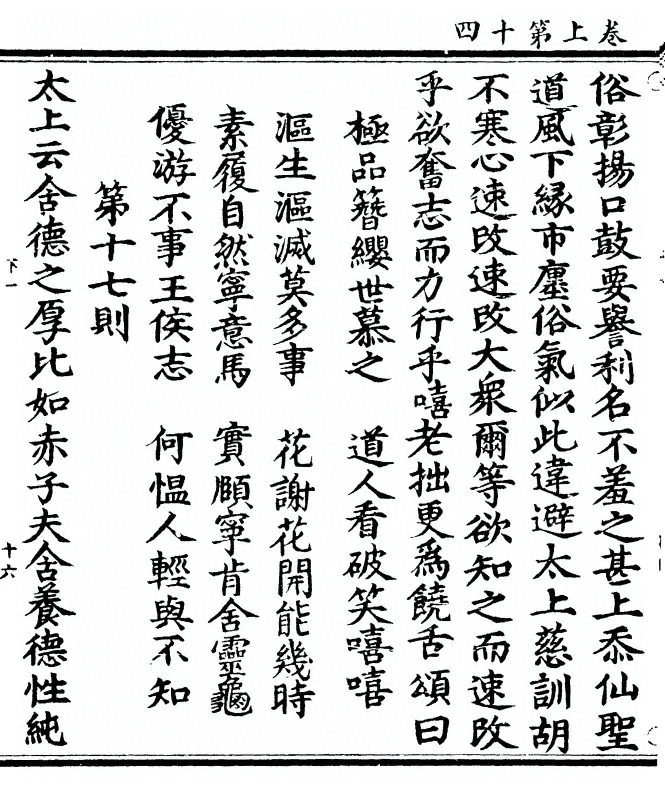 卷上第十四
俗彰揚口鼓要譽利名不羞之甚上忝仙聖
道風下緣市廛俗氣似此違避太上慈訓胡
不寒心速改速改大衆爾等欲知之而速改
乎欲奮志而力行乎嘻老拙更爲饒舌頌曰
極品簪纓世慕之　道人看破笑嘻嘻
漚生漚滅莫多事　花謝花開能幾時
素履自然寧意馬　實頤寧肯舍靈龜
優游不事王侯志　何愠人輕與不知
第十七則
太上云含德之厚比如赤子夫含養德性純
下一
十六